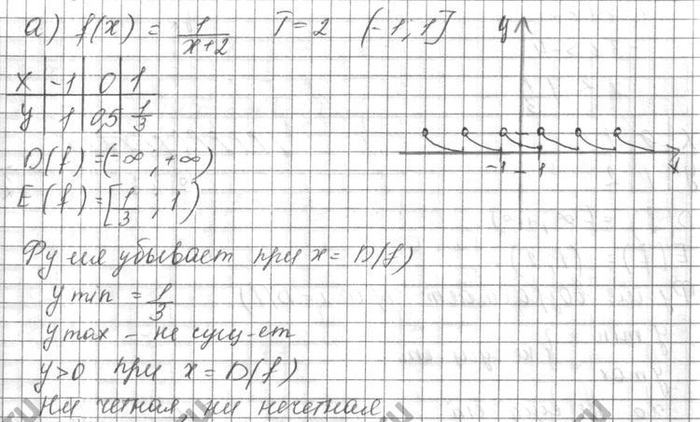 а) f(x) = 1/(x+2) T=2 (-1; 1] y
x -1 0 1
y 1 0,5 1/3
-1 1 x
D(f) = (-∞; +∞)
E(f) = [1/3; 1)
Фу-ия убывает при x = D(f)
y min = 1/3
y max - не сущ-ет
y>0 при x = D(f)
Ни четная, ни нечетная